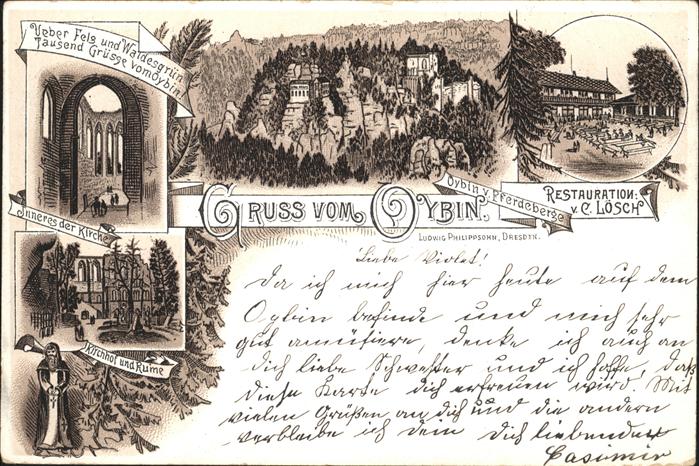 Ueber Fels und Waldesgrün
Tausend Grüsse vom Oybin
Inneres der Kirche
Kirchhof und Ruine
GRUSS VOM OYBIN.
Oybin v. Pferdeberge
RESTAURATION:
v. C. LÖSCH
LUDWIG PHILIPPSOHN, DRESDEN.
Liebe Violet!
Da ich mich hier heute auf dem
Oybin befinde und mich sehr
gut amüsiere, denke ich auch an
dich liebe Schwester und ich hoffe, daß
diese Karte dich erfreuen wird. Mit
vielen Grüßen an dich und die andern
verbleibe ich dein dich liebender
Casimir